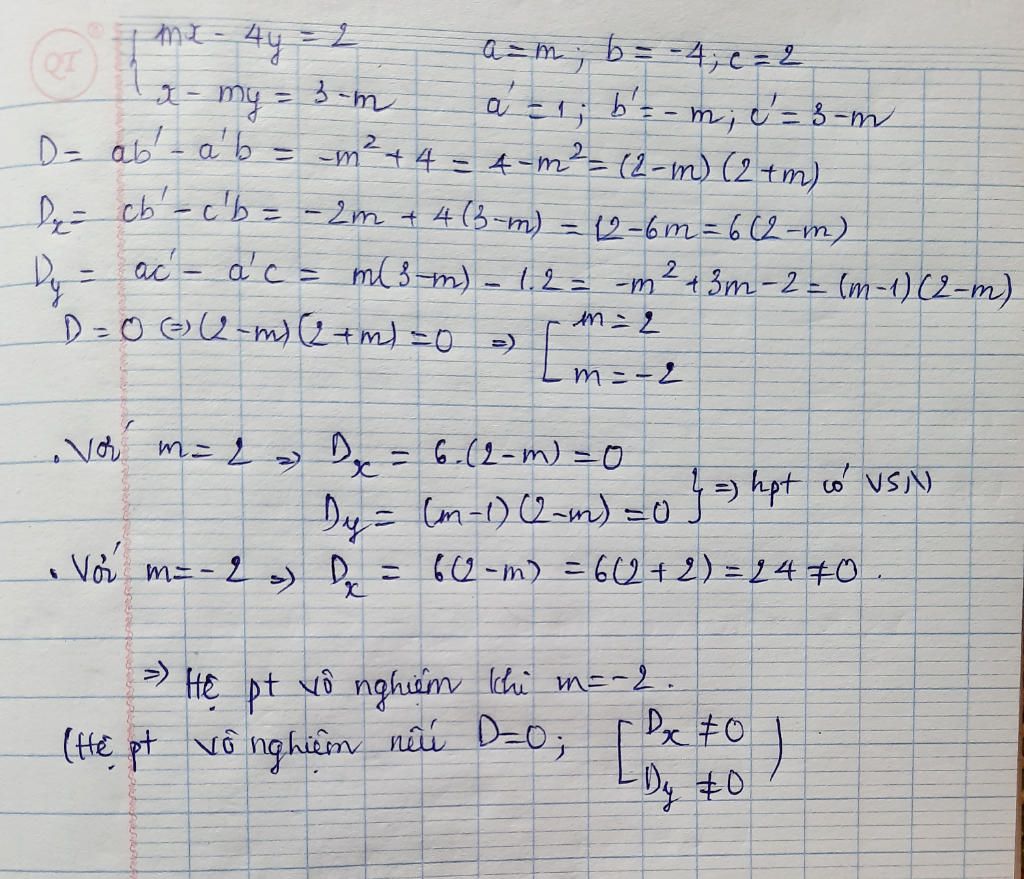 QT
{ mx - 4y = 2    a = m; b = -4; c = 2
x - my = 3-m    a' = 1; b' = -m; c' = 3-m
D = ab' - a'b = -m² + 4 = 4 - m² = (2-m)(2+m)
Dx = cb' - c'b = -2m + 4(3-m) = 12 - 6m = 6(2-m)
Dy = ac' - a'c = m(3-m) - 1.2 = -m² + 3m - 2 = (m-1)(2-m)
D = 0 ⇔ (2-m)(2+m) = 0 ⇒ [ m = 2
m = -2
. Với m = 2 ⇒ Dx = 6.(2-m) = 0
Dy = (m-1)(2-m) = 0 } ⇒ hpt có VSN
. Với m = -2 ⇒ Dx = 6(2-m) = 6(2+2) = 24 ≠ 0.
⇒ Hệ pt vô nghiệm khi m = -2.
(Hệ pt vô nghiệm nếu D = 0; [ Dx ≠ 0
Dy ≠ 0 )